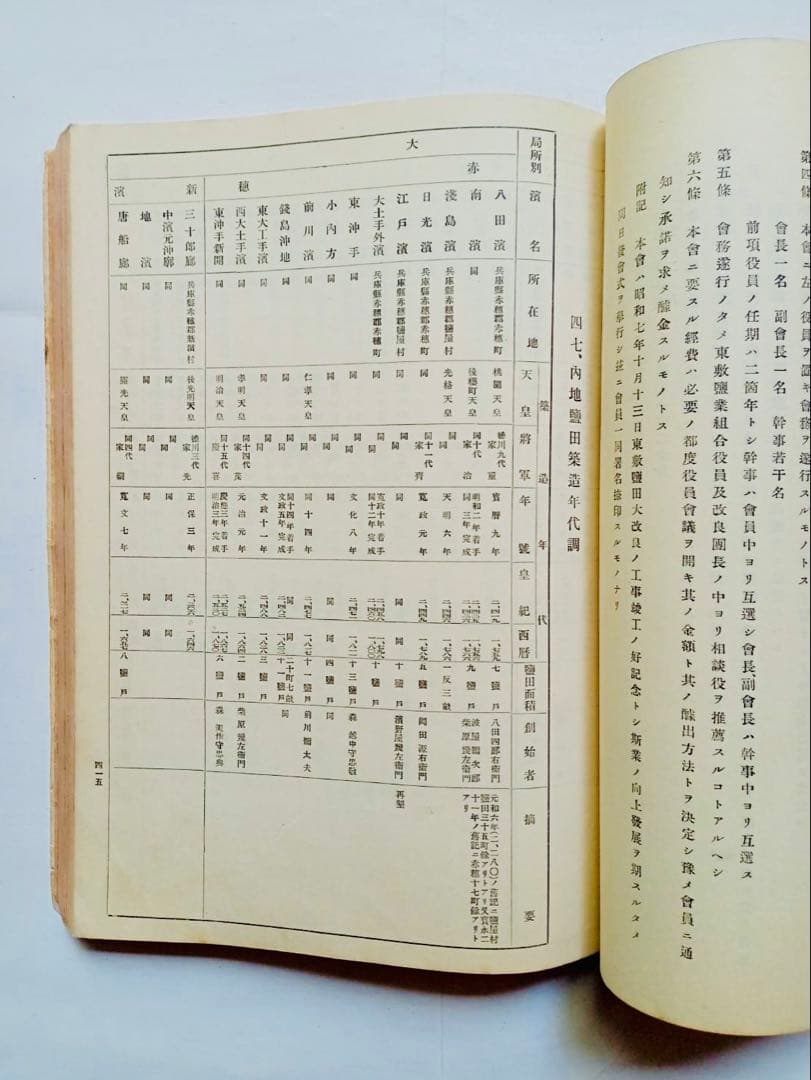 第四條 本會ニ左ノ役員ヲ置キ會務ヲ遂行スルモノトス
會長一名 副會長一名 幹事若干名
前項役員ノ任期ハ二箇年トシ幹事ハ會員中ヨリ互選シ會長、副會長ハ幹事中ヨリ互選ス
第五條 會務遂行ノタメ東敷鹽業組合役員及改良團長ノ中ヨリ相談役ヲ推薦スルコトアルヘシ
第六條 本會ニ要スル經費ハ必要ノ都度役員會議ヲ開キ其ノ金額ト其ノ醵出方法トヲ決定シ豫メ會員ニ通
知シ承諾ヲ求メ醵金スルモノトス
附記 本會ハ昭和七年十月十三日東敷鹽田大改良ノ工事竣工ノ好記念トシ斯業ノ向上發展ヲ期スルタメ
同日發會式ヲ擧行シ玆ニ會員一同署名捺印スルモノナリ
四七、內地鹽田築造年代調
局所別 濱名 所在地 築造年代 天皇 將軍 年號 皇紀 西曆 鹽田面積 創始者 摘要
大 赤穗
八田濱 兵庫縣赤穗郡鹽屋村 桃園天皇 德川九代家重 寶曆九年 二、四一九 一、七五九 七鹽戶 八田四郞右衞門
元和六年(二、二八〇)ノ舊記ニ鹽屋村
鹽田三十五町餘アリトアリ又寬永二
十一年ノ舊記ニ赤穗十七町餘アリト
アリ
南濱 同 後櫻町天皇 同十代家治 明和二年着手 同三年完成 九鹽戶 柴原幾左衞門
淺島濱 兵庫縣赤穗郡鹽屋村 光格天皇 同 天明六年 二、四四六 一、七八六 一反三畝
日光濱 兵庫縣赤穗郡赤穗町 同 同十一代家齊 寬政元年 二、四四九 一、七八九 五鹽戶 岡田源右衞門
江戶濱 兵庫縣赤穗郡鹽屋村 同 同 同 同 同 十鹽戶 濱野屋幾左衞門 再墾
大土手外濱 兵庫縣赤穗郡赤穗町 同 同 寬政十年着手 同十二年完成 十鹽戶
東沖手 同 同 同 文化八年 二、四七一 一、八一一 十三鹽戶 森越中守忠敬
小內方 同 同 同 同 同 同 四鹽戶 同
前川濱 同 仁孝天皇 同 同十四年 二、四七七 一、八一七 十一鹽戶 前川彌太夫
錢島沖地 同 同 同 同十四年着手 文政五年完成 二十町七畝 同
東大工手濱 同 同 同 文政十一年 二、四八八 三鹽戶
西大土手濱 同 孝明天皇 同十四代家茂 元治元年 二、五二四 一、八六四 二鹽戶 柴原幾左衞門
東沖手新開 同 明治天皇 同十五代慶喜 慶應三年着手 明治三年完成 六鹽戶 森美作守忠典
新濱
三十郞廊 兵庫縣赤穗郡新濱村 後光明天皇 德川三代家光 正保三年 二、三〇六 一、六四六
中濱元沖廓 同 同 同 同 同 同
地濱 同 同 同 同 同 同
唐船廊 同 靈元天皇 同四代家綱 寬文七年 二、三二七 一、六六七 八鹽戶
四一五